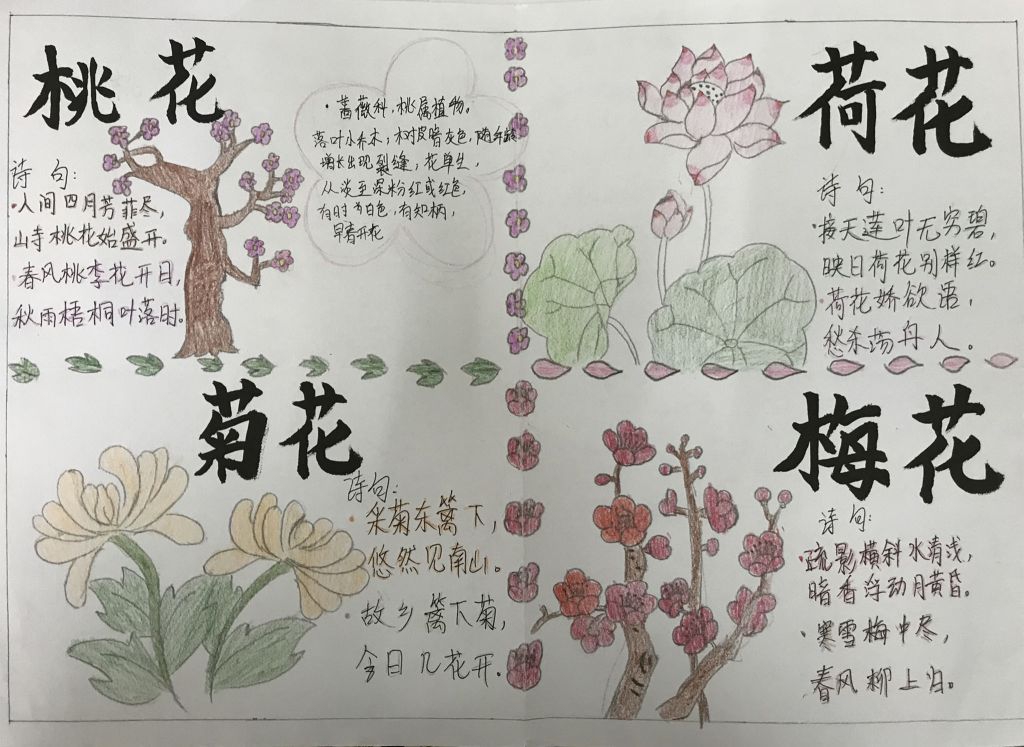 桃花
诗句:
·人间四月芳菲尽,
山寺桃花始盛开。
·春风桃李花开日,
秋雨梧桐叶落时。
·蔷薇科,桃属植物。
落叶小乔木;树皮暗灰色,随年龄
增长出现裂缝,花单生,
从淡至深粉红或红色,
有时为白色,有短柄,
早春开花
荷花
诗句:
·接天莲叶无穷碧,
映日荷花别样红。
·荷花娇欲语,
愁杀荡舟人。
菊花
诗句:
·采菊东篱下,
悠然见南山。
·故乡篱下菊,
今日几花开.
梅花
诗句:
·疏影横斜水清浅,
暗香浮动月黄昏。
·寒雪梅中尽,
春风柳上归。